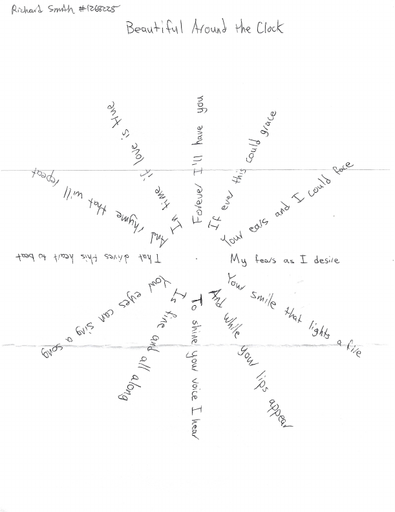 Richard Smith #1268225
Beautiful Around the Clock
Forever I'll have you
If ever this could grace
Your ears and I could face
My fears as I desire
Your smile that lights a fire
And while your lips appear
To shine your voice I hear
Is fine and all along
Your eyes can sing a song
That drives this heart to beat
And rhyme that will repeat
In time if love is true